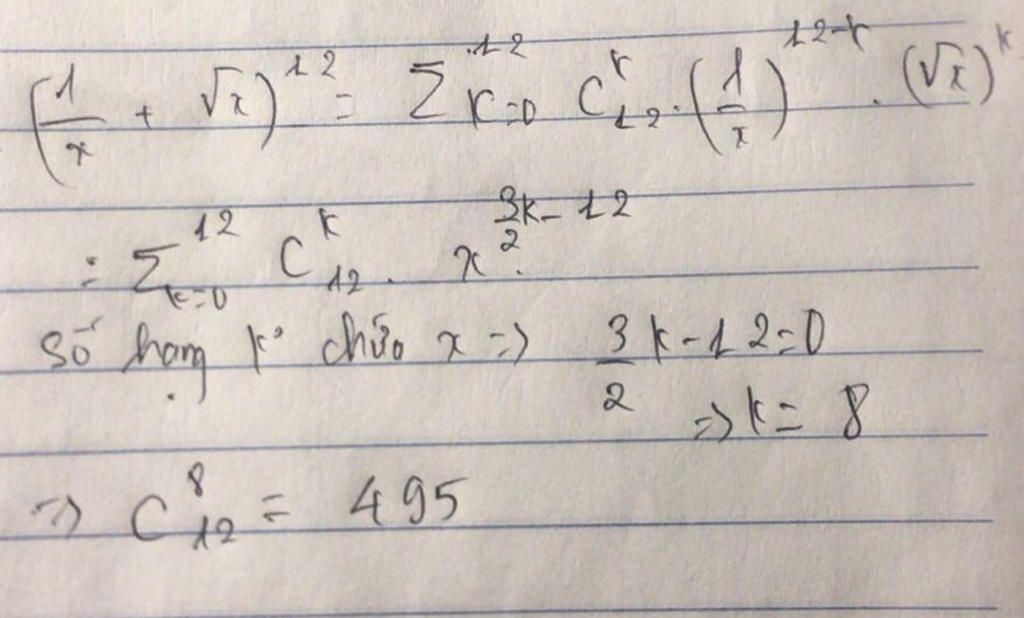 (1/x + √x)^12 = Σ_{k=0}^{12} C_{12}^k . (1/x)^{12-k} . (√x)^k
= Σ_{k=0}^{12} C_{12}^k . x^{3/2 k - 12}
số hạng k° chứa x => 3/2 k - 12 = 0
=> k = 8
=> C_{12}^8 = 495